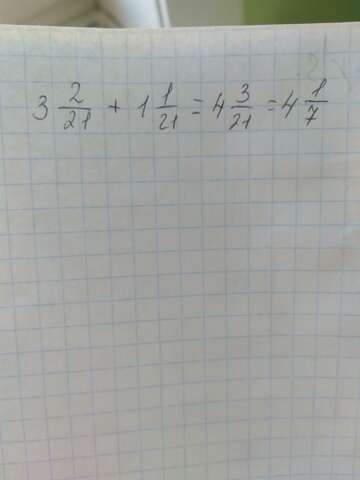 3 2/21 + 1 1/21 = 4 3/21 = 4 1/7